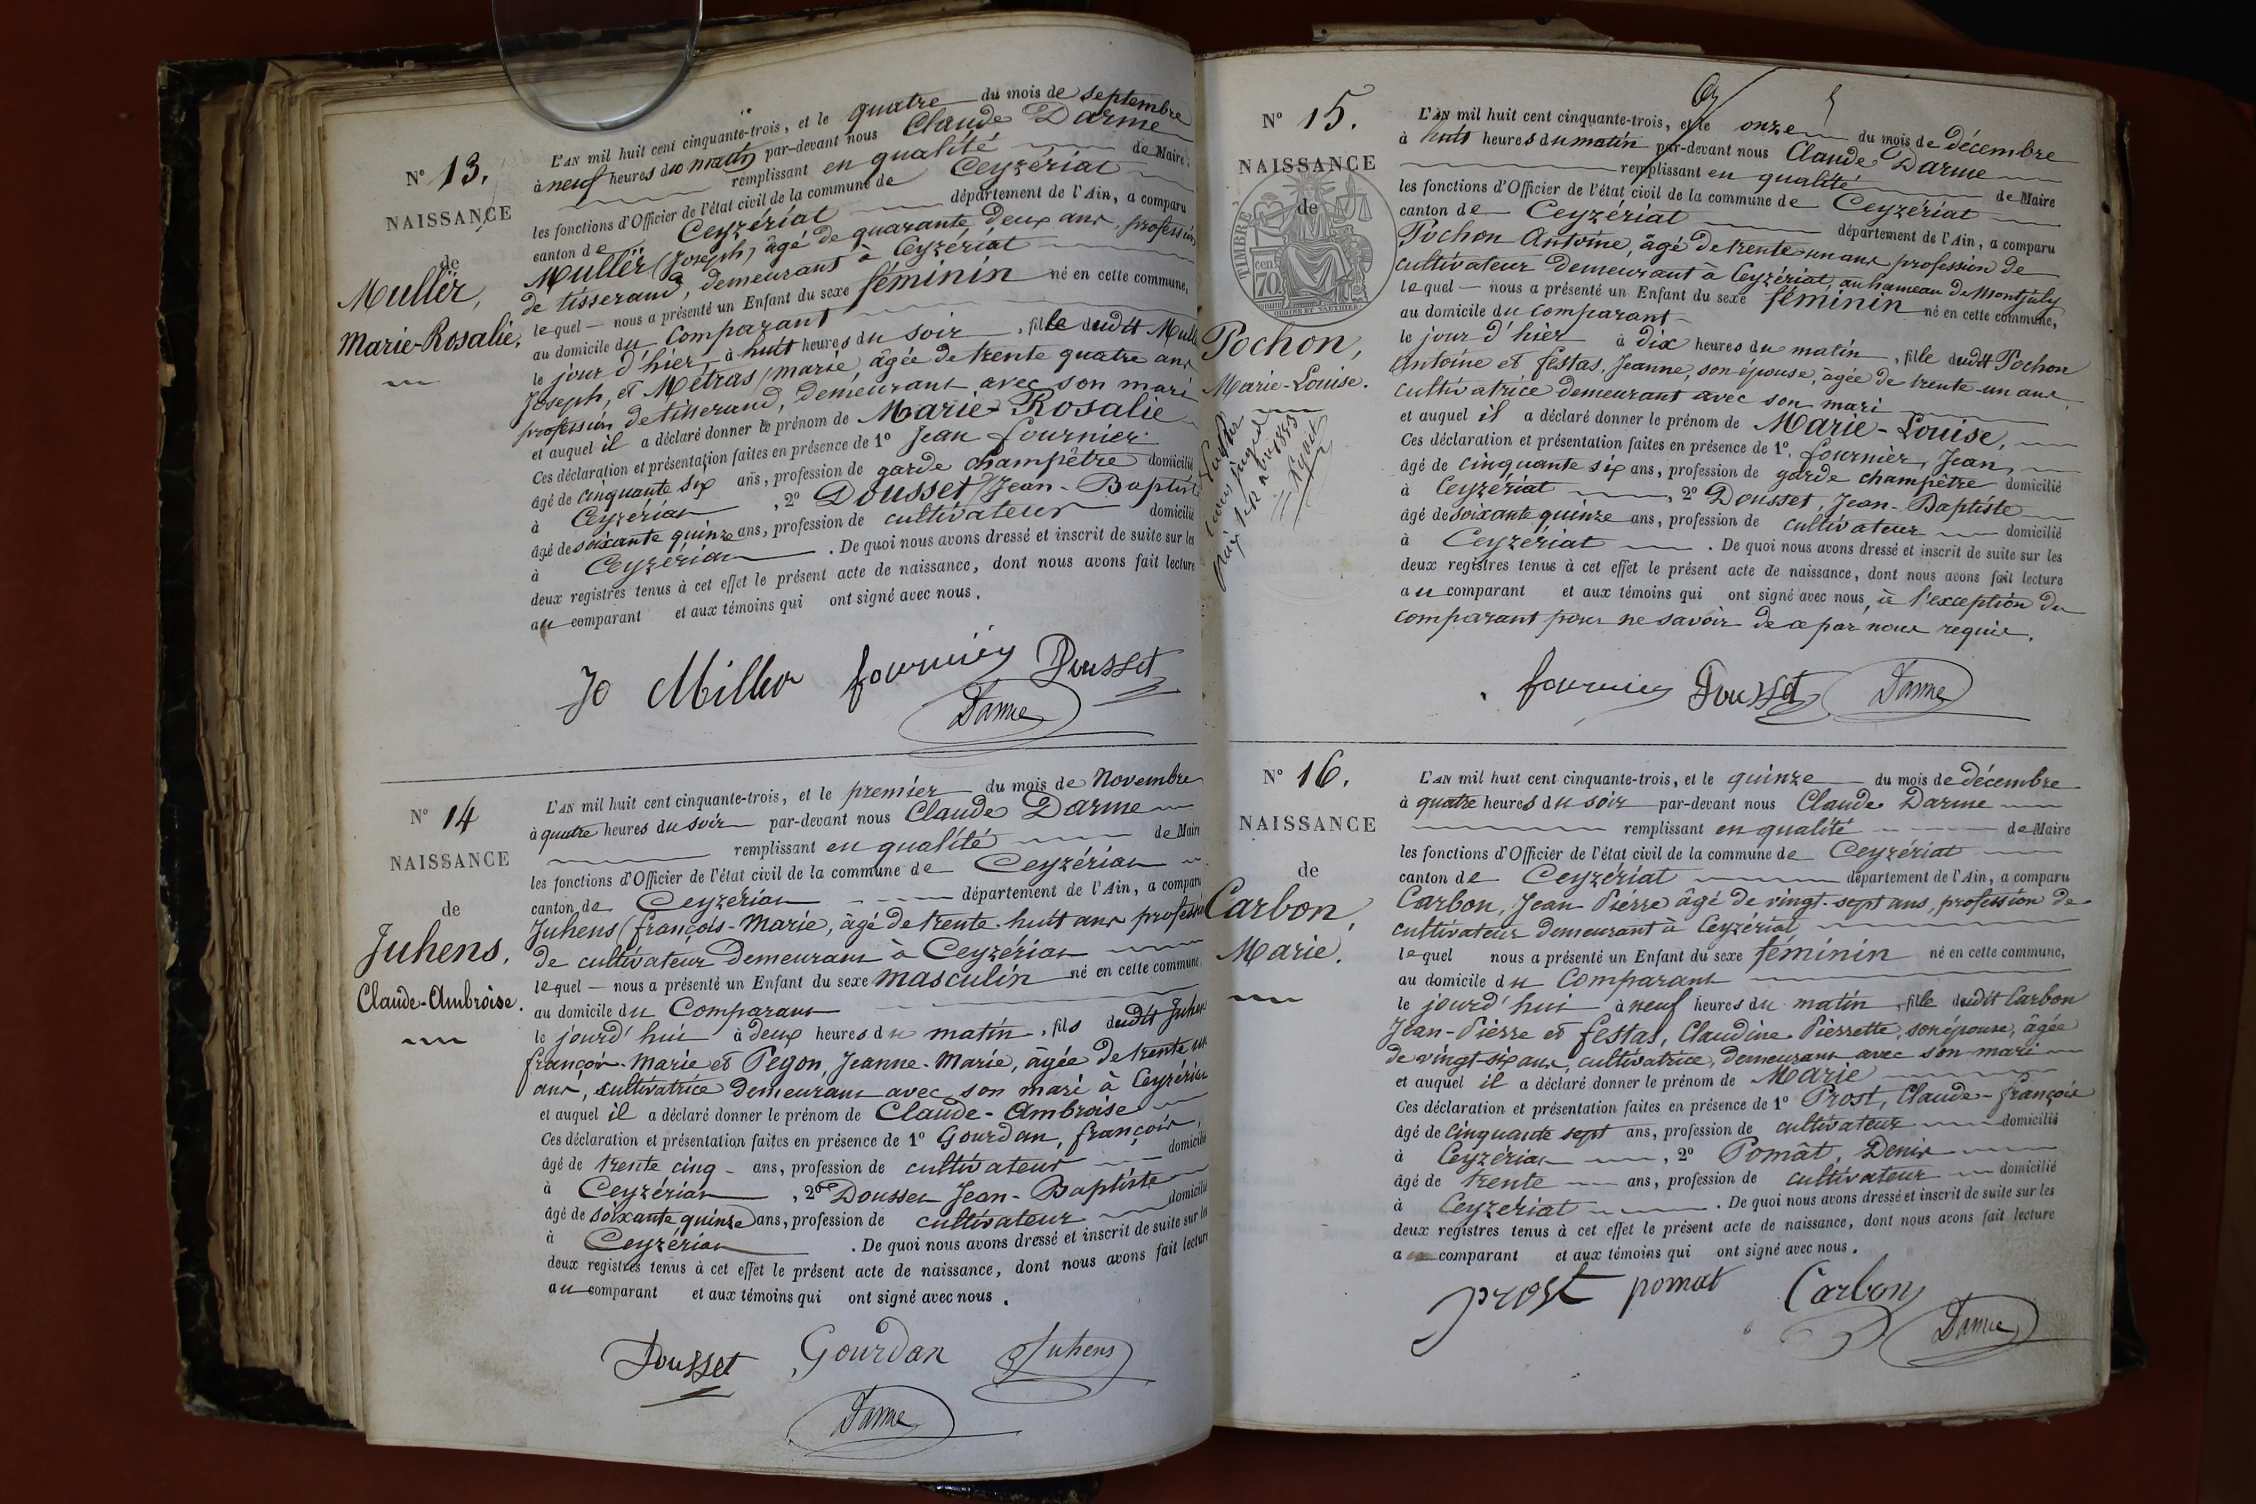 N° 13.
NAISSANCE
de
Mullër,
Marie-Rosalie.
L'AN mil huit cent cinquante-trois, et le quatre du mois de septembre
à neuf heures du matin par-devant nous Claude Darme
remplissant en qualité de Maire
les fonctions d'Officier de l'état civil de la commune de Ceyzériat
canton de Ceyzériat département de l'Ain, a comparu
Mullër (Joseph) âgé de quarante deux ans, profession
de tisserand, demeurant à Ceyzériat
lequel nous a présenté un Enfant du sexe féminin né en cette commune,
au domicile du comparant
le jour d'hier, à huit heures du soir, fille dudit Mullër
Joseph, et Métras marie, âgée de trente quatre ans
profession de tisserand, demeurant avec son mari
et auquel il a déclaré donner le prénom de Marie-Rosalie
Ces déclaration et présentation faites en présence de 1° Jean fournier
âgé de cinquante six ans, profession de garde champêtre domicilié
à Ceyzériat, 2° Dousset, Jean-Baptiste
âgé de soixante quinze ans, profession de cultivateur domicilié
à Ceyzériat. De quoi nous avons dressé et inscrit de suite sur les
deux registres tenus à cet effet le présent acte de naissance, dont nous avons fait lecture
au comparant et aux témoins qui ont signé avec nous.
Jo Miller fournier Dousset
Darme
N° 14
NAISSANCE
de
Juhens,
Claude-Ambroise.
L'AN mil huit cent cinquante-trois, et le premier du mois de Novembre
à quatre heures du soir par-devant nous Claude Darme
remplissant en qualité de Maire
les fonctions d'Officier de l'état civil de la commune de Ceyzériat
canton de Ceyzériat département de l'Ain, a comparu
Juhens (françois-Marie, âgé de trente-huit ans profession
de cultivateur demeurant à Ceyzériat
lequel nous a présenté un Enfant du sexe masculin né en cette commune,
au domicile du Comparant
le jourd'hui à deux heures du matin, fils dudit Juhens
françois-Marie et Pegon, Jeanne-Marie, âgée de trente un
ans, cultivatrice demeurant avec son mari à Ceyzériat
et auquel il a déclaré donner le prénom de Claude-Ambroise
Ces déclaration et présentation faites en présence de 1° Gourdan, françois,
âgé de trente cinq ans, profession de cultivateur domicilié
à Ceyzériat, 2° Dousset Jean-Baptiste
âgé de soixante quinze ans, profession de cultivateur domicilié
à Ceyzériat. De quoi nous avons dressé et inscrit de suite sur les
deux registres tenus à cet effet le présent acte de naissance, dont nous avons fait lecture
au comparant et aux témoins qui ont signé avec nous.
Dousset Gourdan Juhens
Darme
N° 15.
NAISSANCE
de
TIMBRE
cen
70
Pochon,
Marie-Louise.
L'AN mil huit cent cinquante-trois, et le onze du mois de décembre
à huit heures du matin par-devant nous Claude Darme
remplissant en qualité de Maire
les fonctions d'Officier de l'état civil de la commune de Ceyzériat
canton de Ceyzériat département de l'Ain, a comparu
Pochon Antoine, âgé de trente-un ans profession de
cultivateur demeurant à Ceyzériat, au hameau de Montjuly
lequel nous a présenté un Enfant du sexe féminin né en cette commune,
au domicile du comparant
le jour d'hier à dix heures du matin, fille dudit Pochon
Antoine et festas, Jeanne, son épouse, âgée de trente-un ans,
cultivatrice demeurant avec son mari
et auquel il a déclaré donner le prénom de Marie-Louise,
Ces déclaration et présentation faites en présence de 1°. fournier, Jean,
âgé de cinquante six ans, profession de garde champêtre domicilié
à Ceyzériat, 2° Dousset, Jean-Baptiste
âgé de soixante quinze ans, profession de cultivateur domicilié
à Ceyzériat. De quoi nous avons dressé et inscrit de suite sur les
deux registres tenus à cet effet le présent acte de naissance, dont nous avons fait lecture
au comparant et aux témoins qui ont signé avec nous, à l'exception du
comparant pour ne savoir de ce par nous requis.
fournier Dousset Darme
N° 16.
NAISSANCE
de
Carbon,
Marie.
L'AN mil huit cent cinquante-trois, et le quinze du mois de décembre
à quatre heures du soir par-devant nous Claude Darme
remplissant en qualité de Maire
les fonctions d'Officier de l'état civil de la commune de Ceyzériat
canton de Ceyzériat département de l'Ain, a comparu
Carbon, Jean-Pierre âgé de vingt-sept ans, profession de
cultivateur demeurant à Ceyzériat
lequel nous a présenté un Enfant du sexe féminin né en cette commune,
au domicile du Comparant
le jourd'hui à neuf heures du matin, fille dudit Carbon
Jean-Pierre et festas, Claudine Pierrette, son épouse, âgée
de vingt-six ans, cultivatrice, demeurant avec son mari
et auquel il a déclaré donner le prénom de Marie
Ces déclaration et présentation faites en présence de 1° Prost, Claude-françois
âgé de cinquante sept ans, profession de cultivateur domicilié
à Ceyzériat, 2° Pomât, Denis
âgé de trente ans, profession de cultivateur domicilié
à Ceyzériat. De quoi nous avons dressé et inscrit de suite sur les
deux registres tenus à cet effet le présent acte de naissance, dont nous avons fait lecture
au comparant et aux témoins qui ont signé avec nous.
prost pomat Carbon
Darme